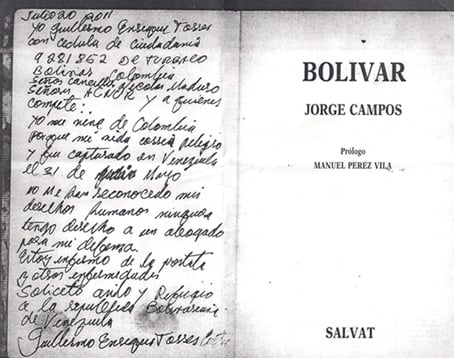 Julio 20 2011
Yo Guillermo Enrique Torres
con cedula de ciudadania
9281852 DE TURBACO
Bolivar Colombia
Señor Canciller Nicolas Maduro
Señores ACNUR y a quienes
compete:
Yo me vine de Colombia
porque mi vida corria peligro
y fui capturado en Venezuela
el 31 de Mayo
no me han reconocedo mis
derechos humanos ninguno
tengo derecho a un abogado
para mi defensa.
Estoy enfermo de la prostata
y otras enfermedades
Solicito asilo y Refugio
a la republica Bolivariana
de Venezuela
Guillermo Enrique Torres
BOLIVAR
JORGE CAMPOS
Prólogo
MANUEL PEREZ VILA
SALVAT